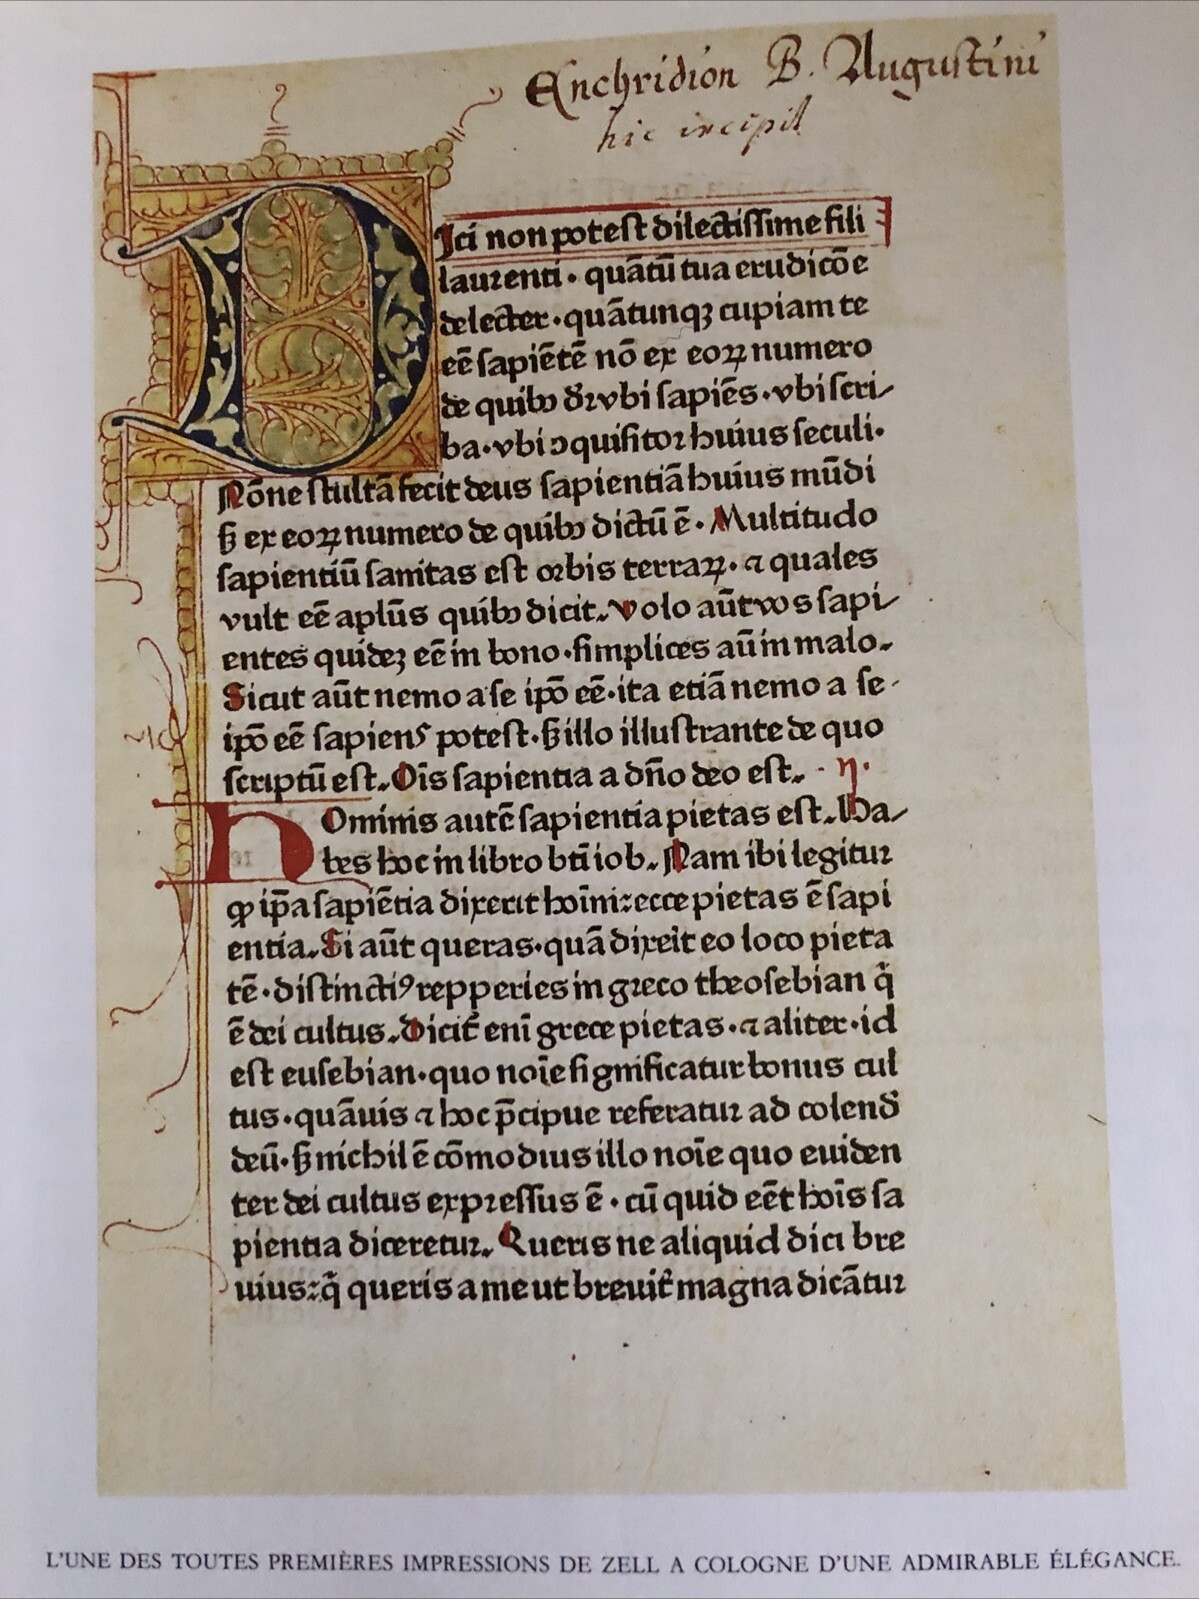 Enchridion B. Augustini
hic incipit
DIci non potest dilectissime fili
laurenti · quātū tua erudicōe
delecter · quātunqꝫ cupiam te
eē sapiētē nō ex eoꝝ numero
de quibꝰ dr̄ vbi sapiēs · vbi scri
ba · vbi ɔquisitor huius seculi ·
Nōne stultā fecit deus sapientiā huius mūdi
ꞩ ex eoꝝ numero de quibꝰ dictū ē · Multitudo
sapientiū sanitas est orbis terraꝝ · ⁊ quales
vult eē aplūs quibꝰ dicit. volo aūt vos sapi
entes quideꝫ eē in bono · simplices aū in malo.
Sicut aūt nemo a se ipō eē · ita etiā nemo a se
ipō eē sapiens potest · ꞩ illo illustrante de quo
scriptū est. Oīs sapientia a dn̄o deo est. · η ·
HOminis autē sapientia pietas est. Ha
bes hoc in libro bt̄i iob. Nam ibi legitur
ꝙ ip̄a sapiētia dixerit hoīni: ecce pietas ē sapi
entia. Si aūt queras · quā dixeīt eo loco pieta
tē · distinctiꝰ repperies in greco theosebian q̄
ē dei cultus. Dicit᷑ enī grece pietas · ⁊ aliter · id
est eusebian · quo noīe significatur bonus cul
tus · quāuis ⁊ hoc p̄cipue referatur ad colend̄
deū · ꞩ nichil ē cōmodius illo noīe quo euiden
ter dei cultus expressus ē · cū quid eēt hoīs sa
pientia diceretur. Queris ne aliquid dici bre
uius: q̄ queris a me ut breuit᷑ magna dicātur
L'UNE DES TOUTES PREMIÈRES IMPRESSIONS DE ZELL A COLOGNE D'UNE ADMIRABLE ÉLÉGANCE.